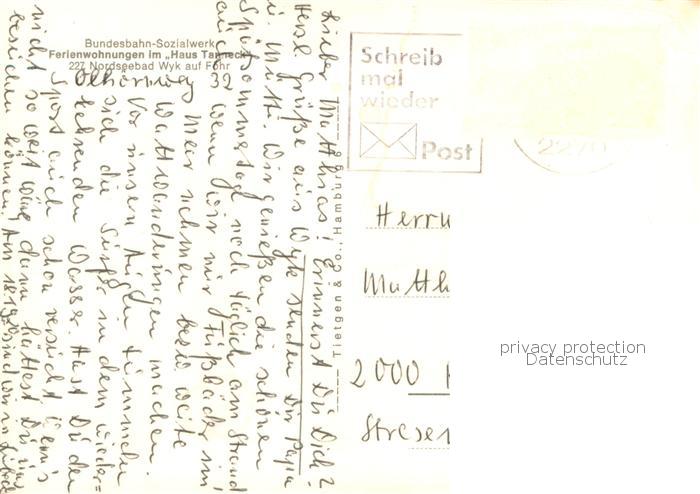 Bundesbahn-Sozialwerk
Ferienwohnungen im „Haus Tanneck"
227 Nordseebad Wyk auf Föhr
Olhörnweg 32
Lieber Matthias! Erinnerst Du Dich?
Herzl. Grüße aus Wyk senden Dir Papa
u. Mutti. Wir genießen die schönen
Spätsommertage noch täglich am Strand
auch wenn wir nur Fußbäder im
Meer nehmen bzw. weite
Wattwanderungen machen.
Vor unsern Augen tummeln
sich die Surfer in dem wieder=
kehrenden Wasser. Hast Du den
Sport auch schon versucht? Wenn's
nicht so weit wäre, dann hättest Du uns
besuchen können. Am sind wir in
Tietgen & Co., Hamburg
Schreib
mal
wieder
Post
2270
Herrn
Matth
2000
Stresem
privacy protection
Datenschutz